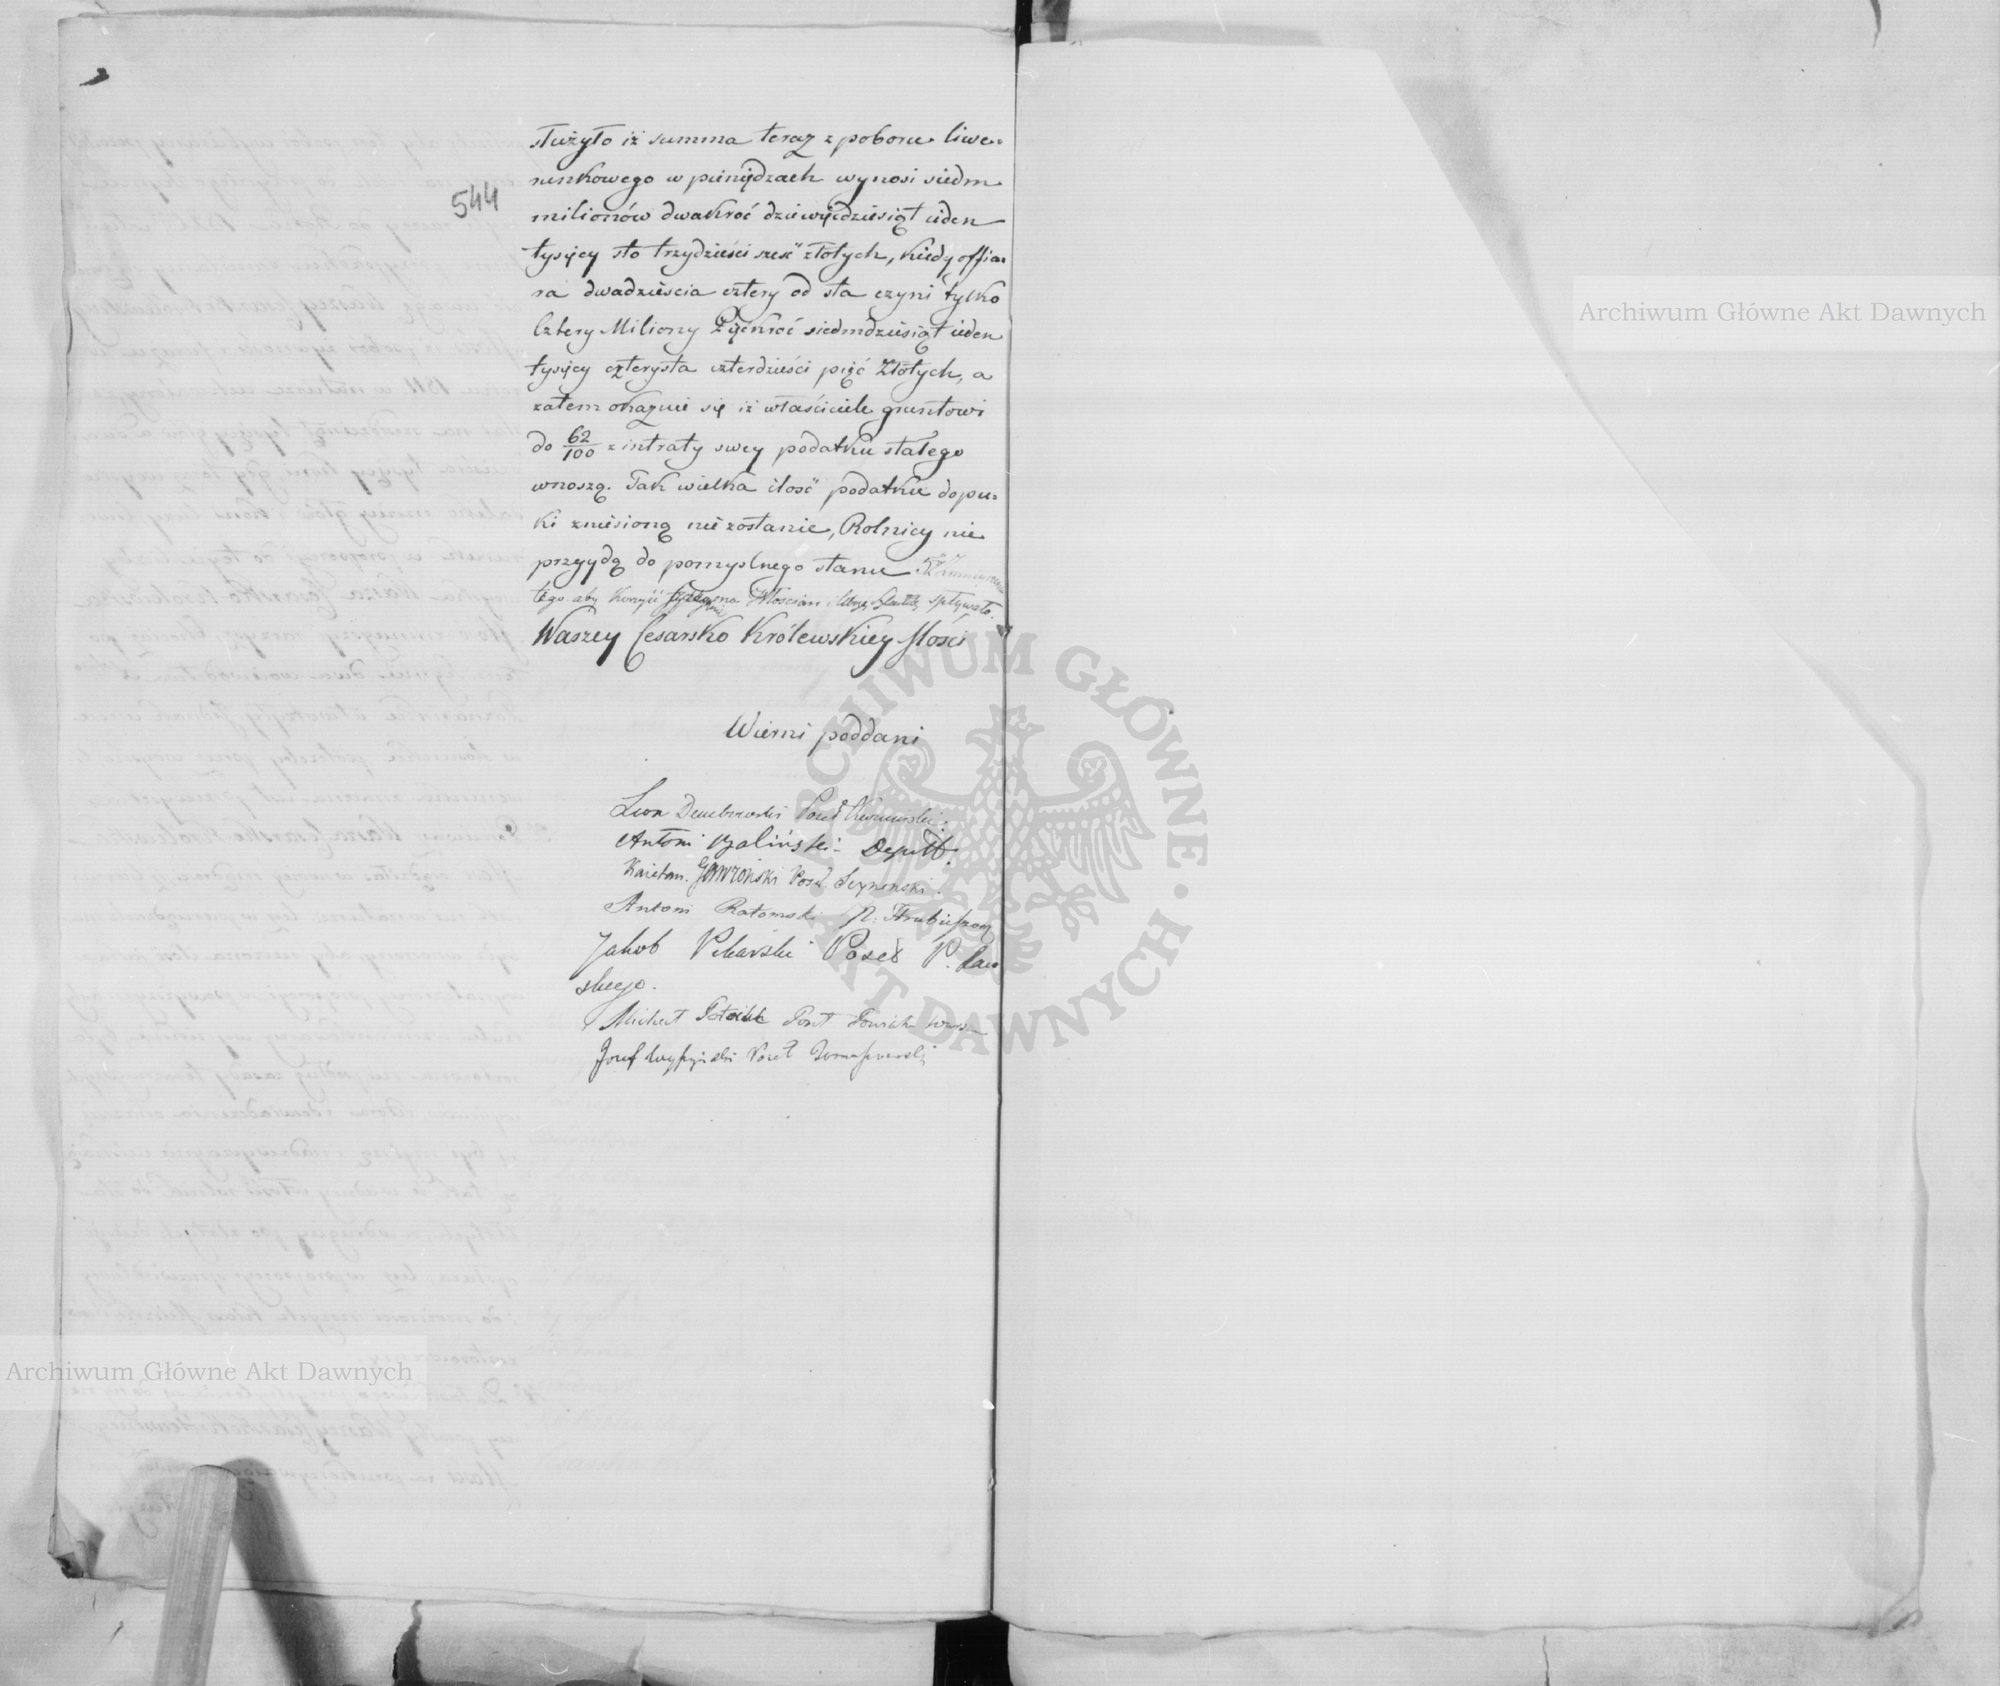 544
służyło iż summa teraz z poboru liwe-
runkowego w pieniędzach wynosi siedm
milionów dwakroć dziewięćdziesiąt ieden
tysięcy sto trzydzieści sześć złotych, kiedy offia-
ra dwadzieścia cztery od sta czyni tylko
Cztery Miliony Pięćkroć siedmdziesiąt ieden
tysięcy czterysta czterdzieści pięć Złotych, a
zatem okazuie się iż właściciele gruntowi
do 62/100 z intraty swey podatku stałego
wnoszą. Tak wielka ilość podatku dopu-
ki zniesioną nie zostanie, Rolnicy nie
przyydą do pomyslnego stanu
tego aby Włościan spływało.
Waszey Cesarsko Królewskiey Mości
Wierni poddani
Leon Dembowski Poseł
Antoni Baliński Deput.
Kaietan Gawroński Poseł
Antoni Ratomski P: Hrubieszow
Jakob Pekarski Poseł P.
skiego.
Michał Poseł Powiatu
Josef Poseł Tomaszowski
Archiwum Główne Akt Dawnych
ARCHIWUM GŁÓWNE · AKT DAWNYCH ·
Archiwum Główne Akt Dawnych